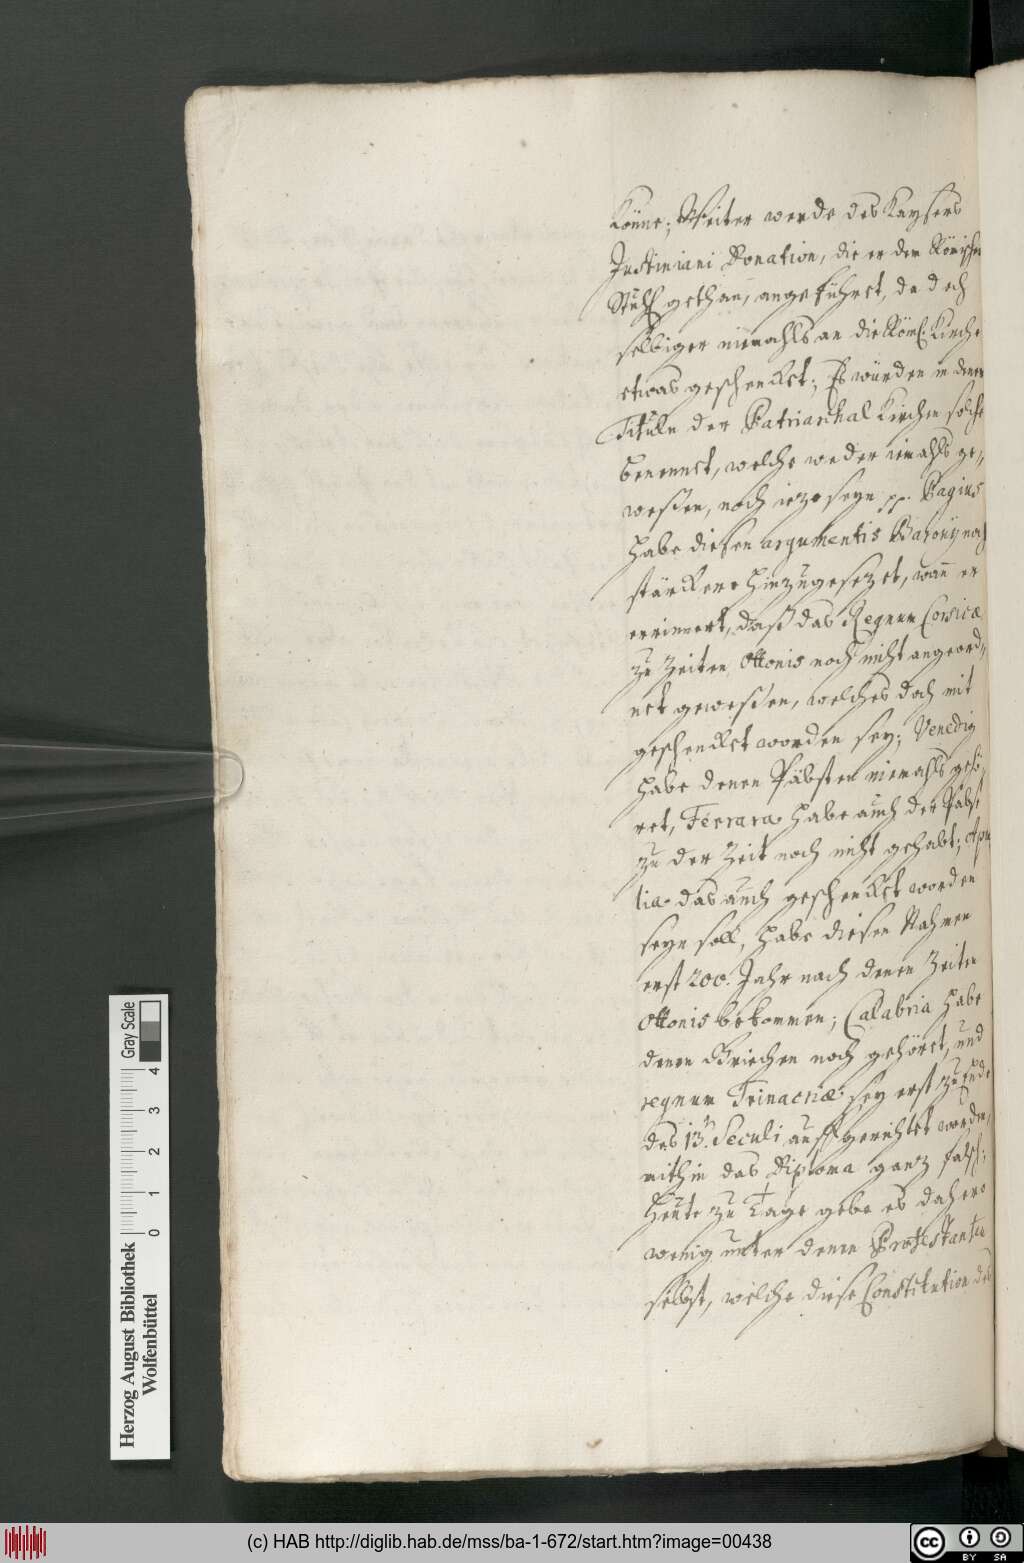 könne; Weiter werde des Kaysers
Justiniani Donation, die er dem Römischen
Stuhl gethan, angeführet, da doch
selbiger niemahls an die Röml. Kirche
etwas geschencket; Es würden in denen
Tituln der Patriarchal Kirchen solche
benennet, welche weder iemahls ge„
weßen, noch iezo seyn pp. Pagius
habe diesen argumentis Baronij noch
stärckere hinzugesezet, wann er
errinnert, daß das Regnum Corsicæ
zu Zeiten Ottonis noch nicht angeord„
net geweßen, welches doch mit
geschencket worden sey; Venedig
habe denen Päbsten niemahls gehö„
ret, Ferrara habe auch der Pabst
zu der Zeit noch nicht gehabt; Apu
lia das auch geschencket worden
seyn soll, habe diesen Nahmen
erst 200. Jahr nach denen Zeiten
Ottonis bekommen; Calabria habe
denen Griechen noch gehöret, und
regnum Trinacriæ sey erst zu Ende
des 13.n Seculi auffgerichtet worden,
mithin das Diploma ganz falsch;
Heute zu Tage gebe es dahero
wenig unter denen Protestanten
selbst, welche diese Constitution des
Herzog August Bibliothek
Wolfenbüttel
0 1 2 3 4
Gray Scale
(c) HAB http://diglib.hab.de/mss/ba-1-672/start.htm?image=00438
cc BY SA